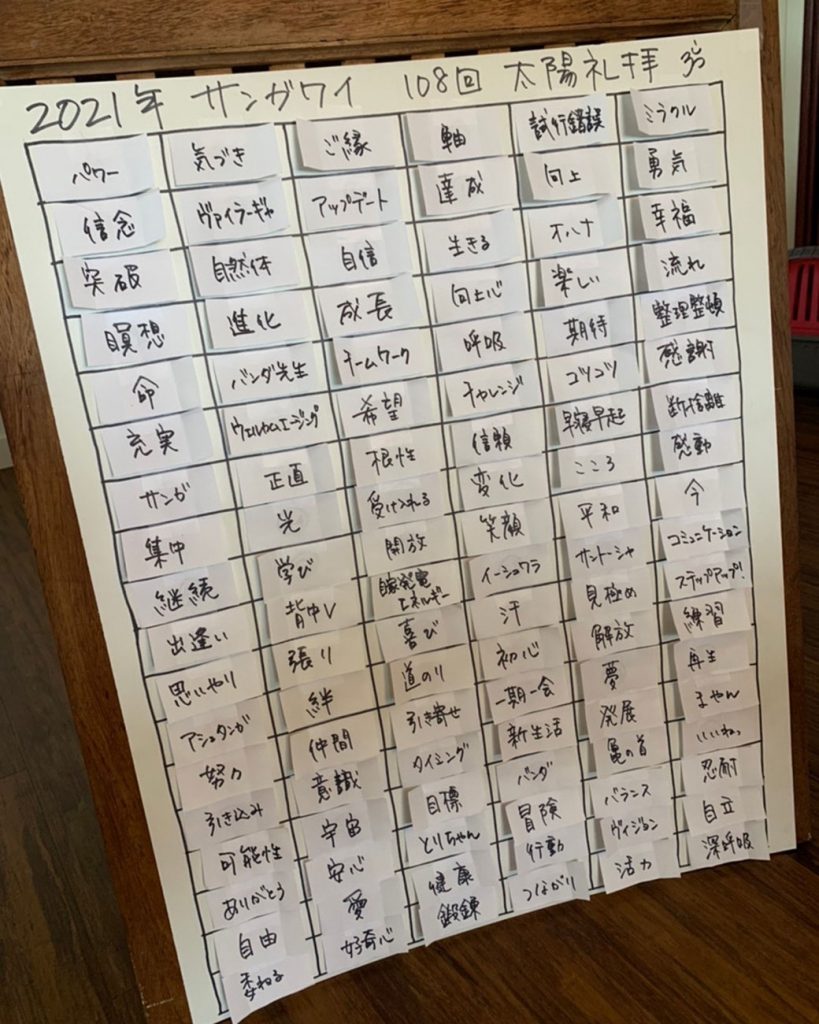 2021年 サンガワイ 108回 太陽礼拝
パワー 気づき ご縁 軸 試行錯誤 ミラクル
信念 ヴァイラーギャ アップデート 達成 向上 勇気
突破 自然体 自信 生きる オハナ 幸福
瞑想 進化 成長 向上心 楽しい 流れ
命 バンダ先生 チームワーク 呼吸 期待 整理整頓
充実 ウェルカムエイジング 希望 チャレンジ コツコツ 感謝
サンガ 正直 根性 信頼 早寝早起 断捨離
集中 光 受け入れる 変化 こころ 感動
継続 学び 開放 笑顔 平和 今
出逢い 背中V 自家発電エネルギー イーシュワラ サントーシャ コミュニケーション
思いやり 張り 喜び 汗 見極め ステップアップ!
アシュタンガ 絆 道のり 初心 解放 練習
努力 仲間 引き寄せ 一期一会 夢 再生
引き込み 意識 タイミング 新生活 発展 まやん
可能性 宇宙 目標 バンダ 亀の首 いいねっ
ありがとう 安心 とりちゃん 冒険 バランス 忍耐
自由 愛 健康 行動 ヴィジョン 自立
委ねる 好奇心 鍛錬 つながり 活力 深呼吸